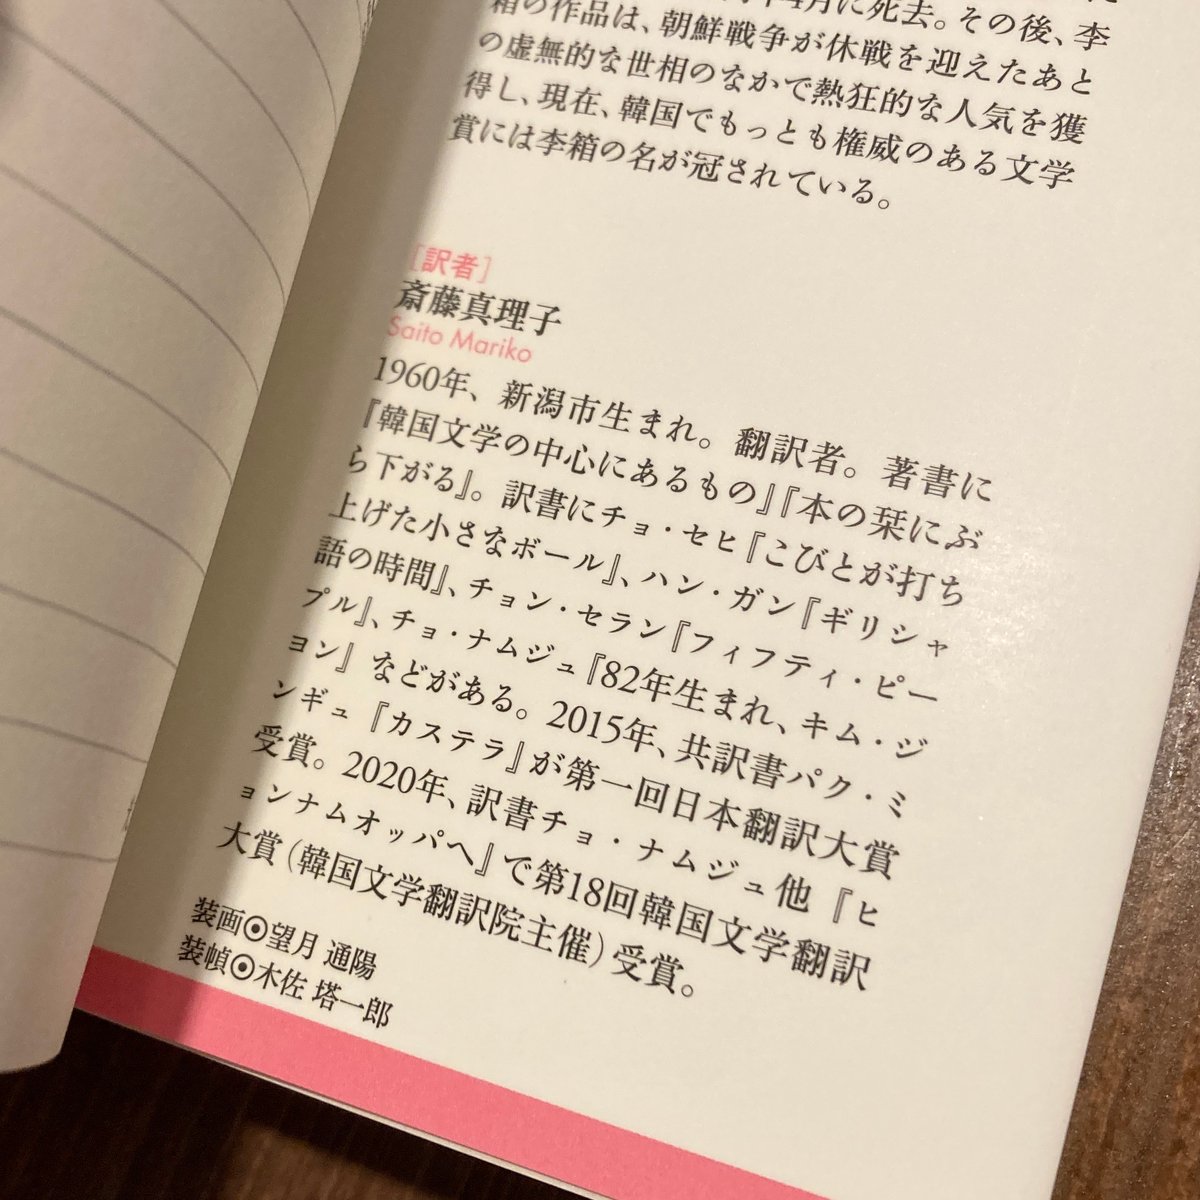 月に死去。その後、李
箱の作品は、朝鮮戦争が休戦を迎えたあと
の虚無的な世相のなかで熱狂的な人気を獲
得し、現在、韓国でもっとも権威のある文学
賞には李箱の名が冠されている。
[訳者]
斎藤真理子
Saito Mariko
1960年、新潟市生まれ。翻訳者。著書に
『韓国文学の中心にあるもの』『本の栞にぶ
ら下がる』。訳書にチョ・セヒ『こびとが打ち
上げた小さなボール』、ハン・ガン『ギリシャ
語の時間』、チョン・セラン『フィフティ・ピー
プル』、チョ・ナムジュ『82年生まれ、キム・ジ
ヨン』などがある。2015年、共訳書パク・ミ
ンギュ『カステラ』が第一回日本翻訳大賞
受賞。2020年、訳書チョ・ナムジュ他『ヒ
ョンナムオッパへ』で第18回韓国文学翻訳
大賞(韓国文学翻訳院主催)受賞。
装画◉望月 通陽
装幀◉木佐 塔一郎